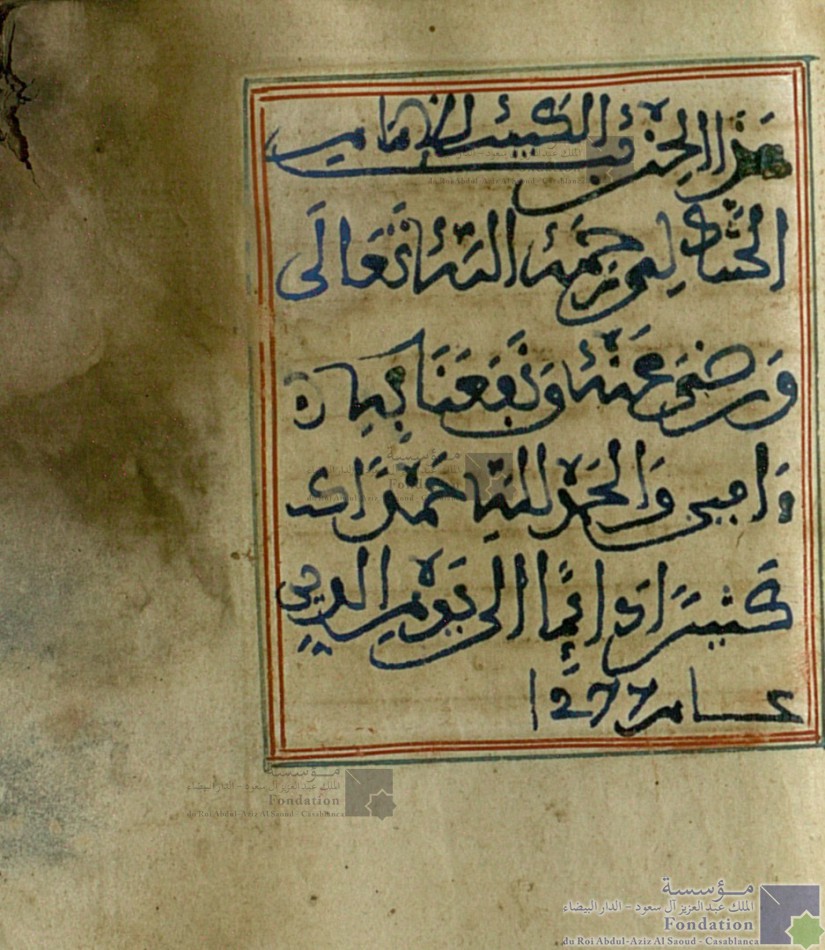 هَذَا الحزب الكبير للامام
الشَّاذلي رحِمَهُ اللهُ تَعَالَى
وَرضيَ عَنْهُ وَنَفَعَنَا بِه
ءامين وَالحَمْد للهِ حمْدًا
كَثيرًا دَائمًا الى يَوْم الدين
عام 1277
مؤسسة
الملك عبد العزيز آل سعود - الدار البيضاء
Fondation
du Roi Abdul-Aziz Al Saoud - Casablanca
مؤسسة
الملك عبد العزيز آل سعود - الدار البيضاء
Fondation
du Roi Abdul-Aziz Al Saoud - Casablanca